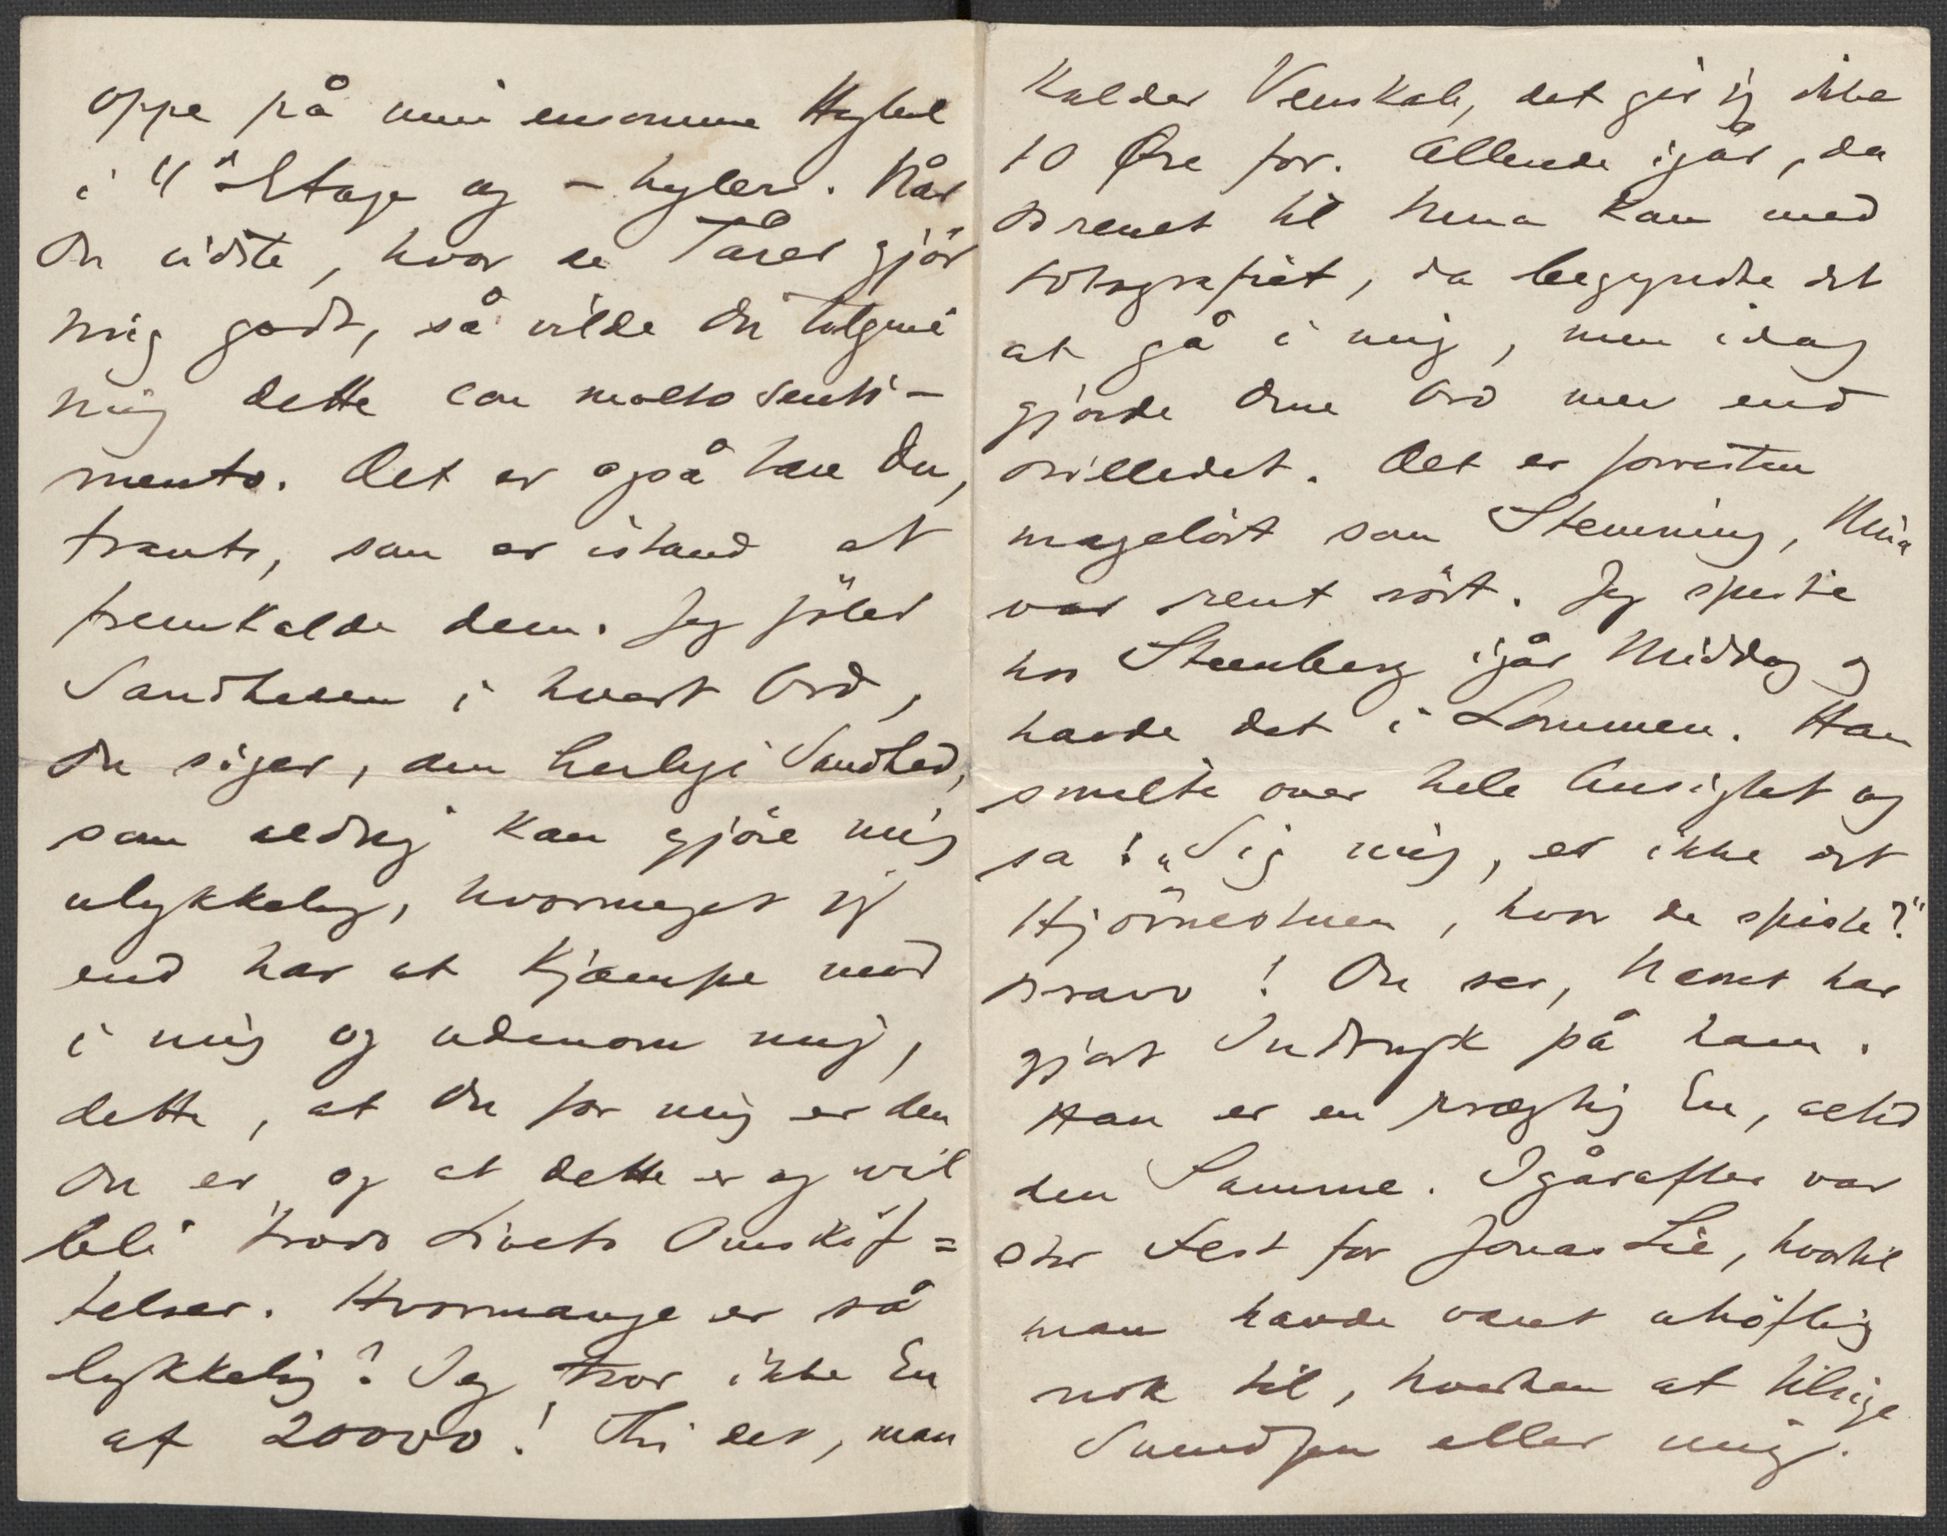 oppe på min ensomme Hybel
i 4de Etage og – hyler. Når
Du vidste, hvor de Tårer gjör
mig godt, så vilde Du tilgive
mig dette con molto senti-
mento. Det er også bare Du,
Frants, som er istand at
fremkalde dem. Jeg föler
Sandheden i hvert Ord,
Du siger, den herlige Sandhed,
som aldrig kan gjöre mig
ulykkelig, hvormeget jeg
end har at kjæmpe med
i mig og udenom mig,
dette, at Du for mig er den
Du er, og at dette er og vil
bli trods Livets Omskif=
telser. Hvormange er så
lykkelig? Jeg tror ikke En
af 20000! Thi det, man
kalder Venskab, det gir jeg ikke
10 Øre for. Allerede igår, da
Brevet til Nina kom med
Fotografiet, da begyndte det
at gå i mig, men idag
gjorde Dine Ord mer end
Billedet. Det er forresten
magelöst som Stemning, Nina
var rent rört. Jeg spiste
hos Steenberg igår Middag og
havde det i Lommen. Han
smilte over hele Ansigtet og
sa: „Sig mig, er ikke det
Hjörnestuen, hvor de spiste?"
Bravo! Du ser, Næset har
gjort Indtryk på ham.
Han er en prægtig En, altid
den Samme. Igåraftes var
stor Fest for Jonas Lie, hvortil
man havde været uhöflig
nok til, hverken at tilsige
Svendsen eller mig.